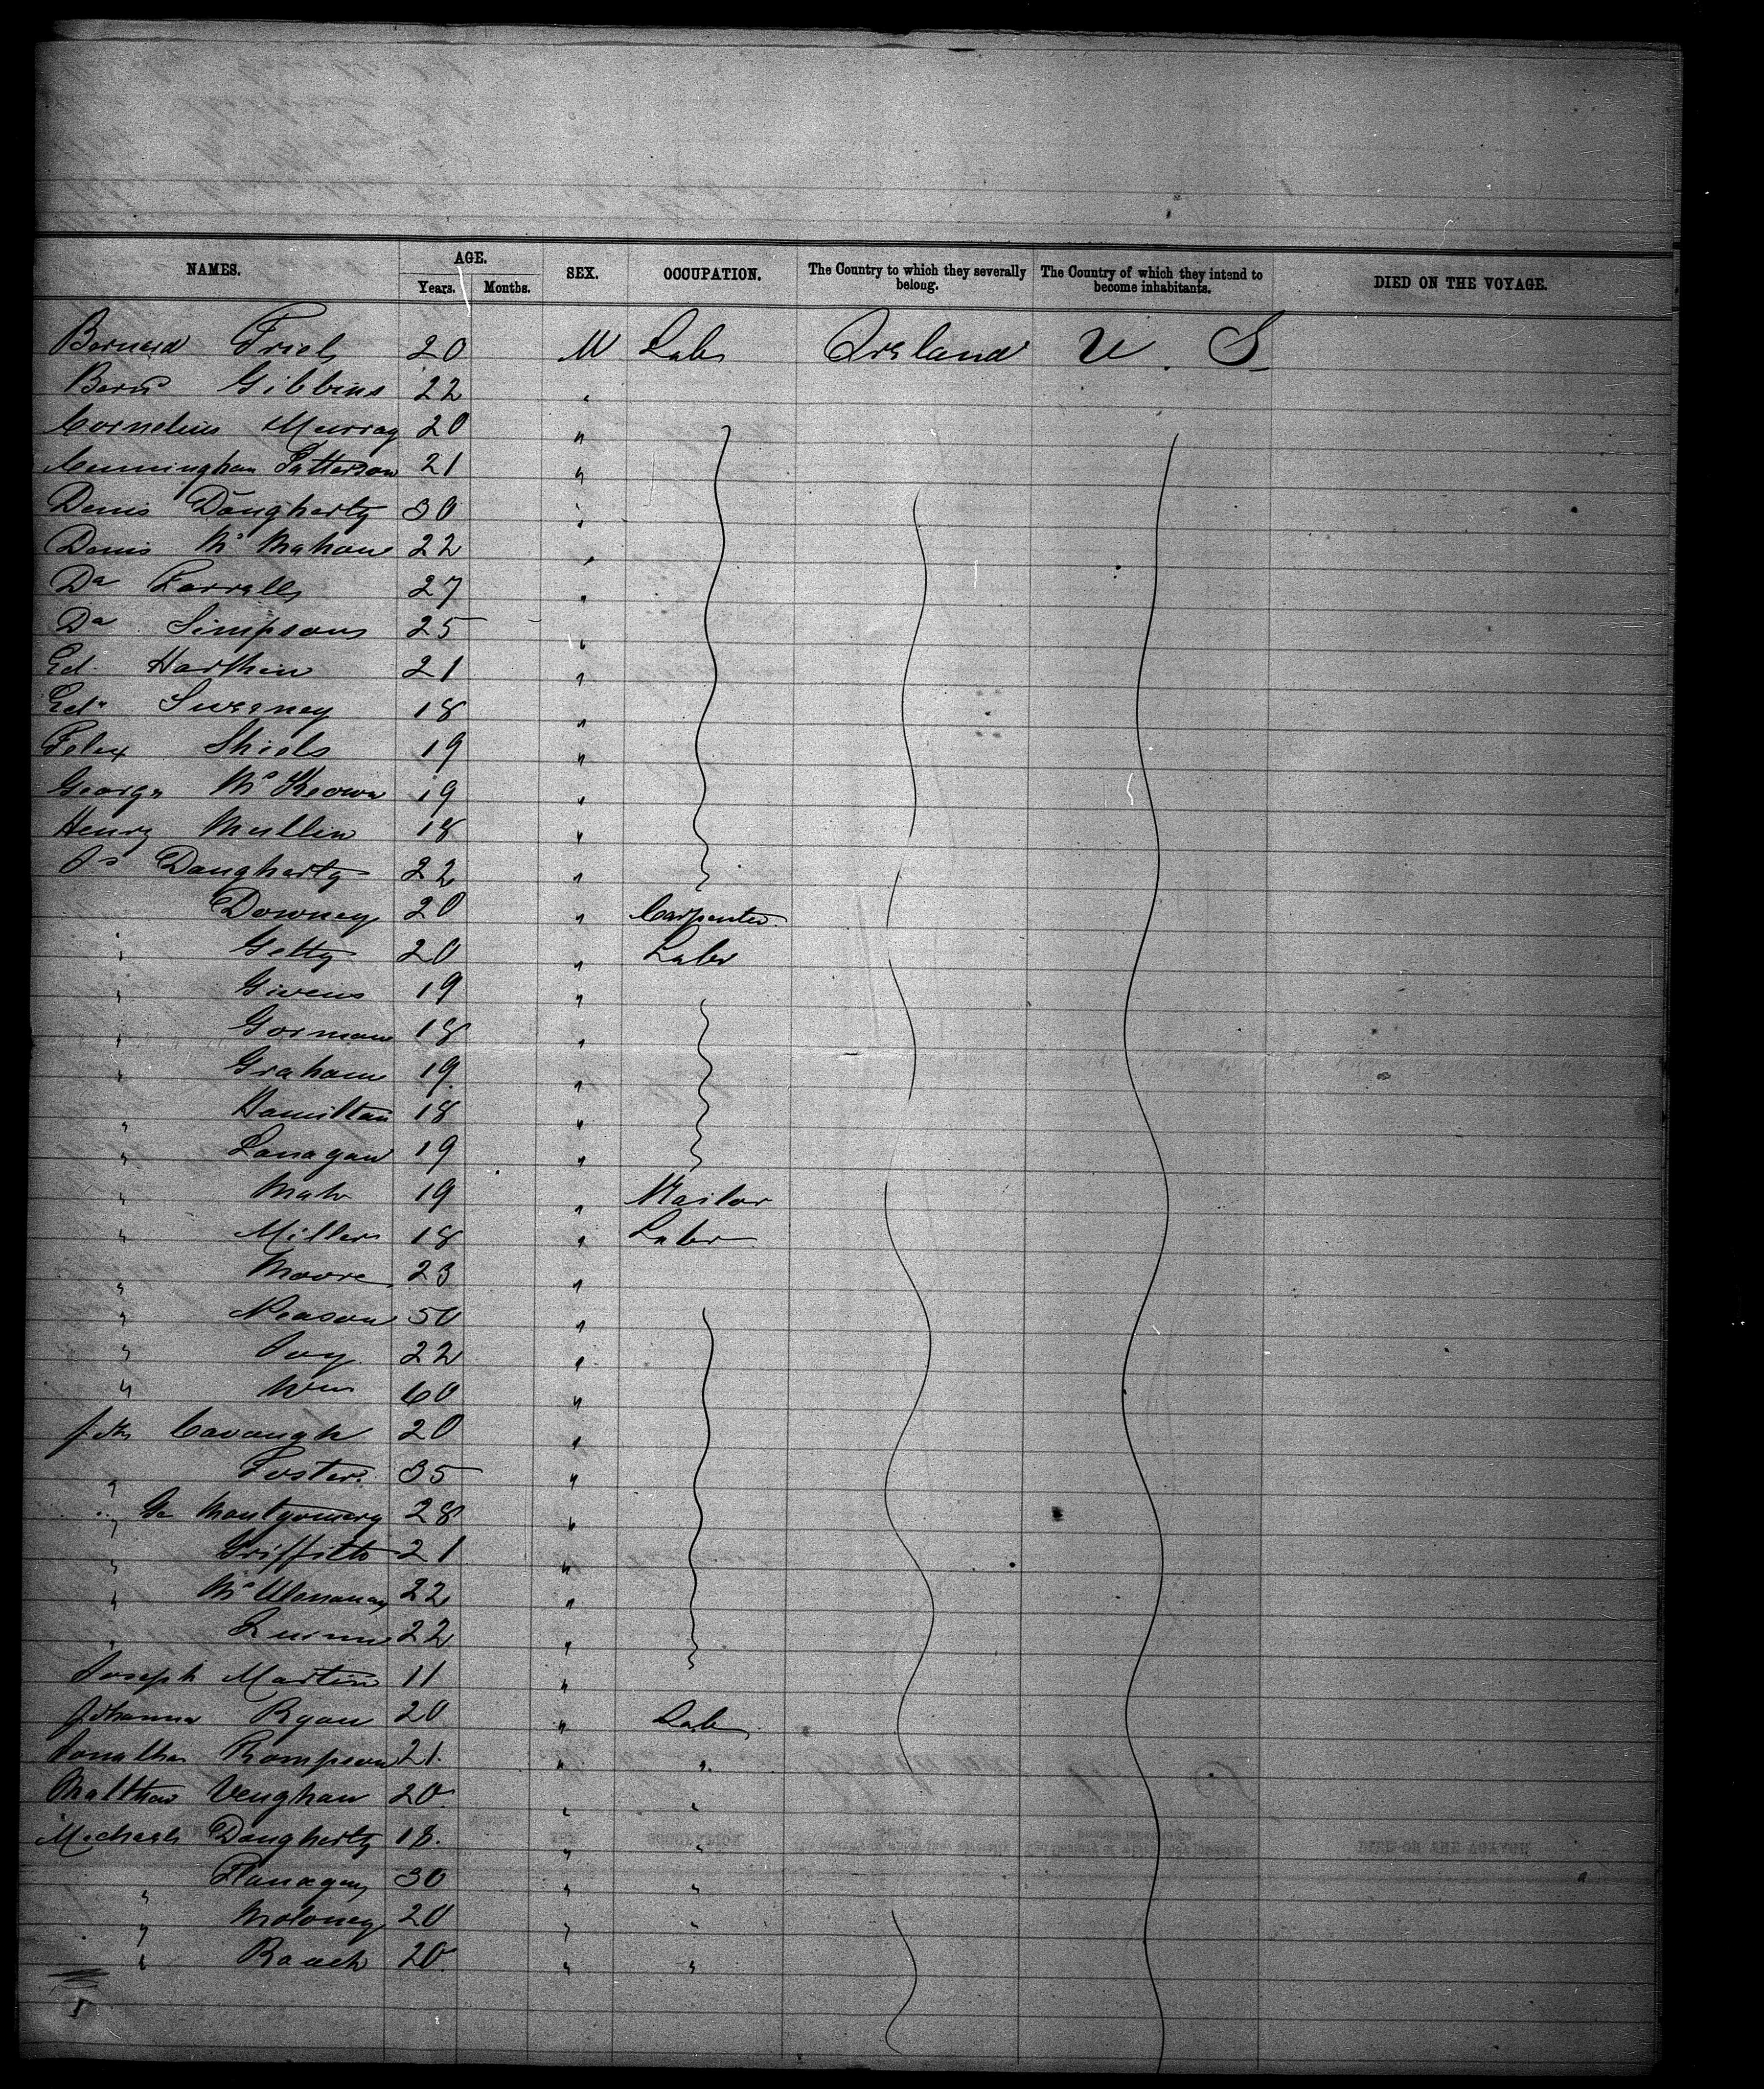 NAMES. AGE. SEX. OCCUPATION. The Country to which they severally belong. The Country of which they intend to become inhabitants. DIED ON THE VOYAGE.
Years. Months.
Bernard Friel 20 M Labr Ireland U. S
Bernd Gibbins 22 "
Cornelius Murray 20 "
Cunningham Patterson 21 "
Denis Daugherty 30 "
Denis Mc Mahon 22 "
Da Farrell 27 "
Da Simpson 25 "
Ed. Harthin 21 "
Edd Sweeney 18 "
Felix Shiels 19 "
George Mc Keown 19 "
Henry Mullin 18 "
Js Daugherty 22 "
Downey 20 " Carpenter
" Getty 20 " Labr
" Givens 19 "
" Gorman 18 "
" Graham 19 "
" Hamilton 18 "
" Lanagan 19 "
" 19 "
" Miller 18 " Labr
" Moore 23 "
" Neason 50 "
" 22 "
" 60 "
Jno Cavangh 20 "
" Foster 35 "
" Ge Montgomery 28 "
" Griffith 21 "
" 22 "
" Quinn 22 "
Joseph Martin 11 "
Johanna Ryan 20 " Labr
Jonathan 21 " "
Matthew Veughan 20 " "
Michael Daugherty 18 " "
" Flanagan 30 " "
" Moloney 20 " "
" Roach 20 " "